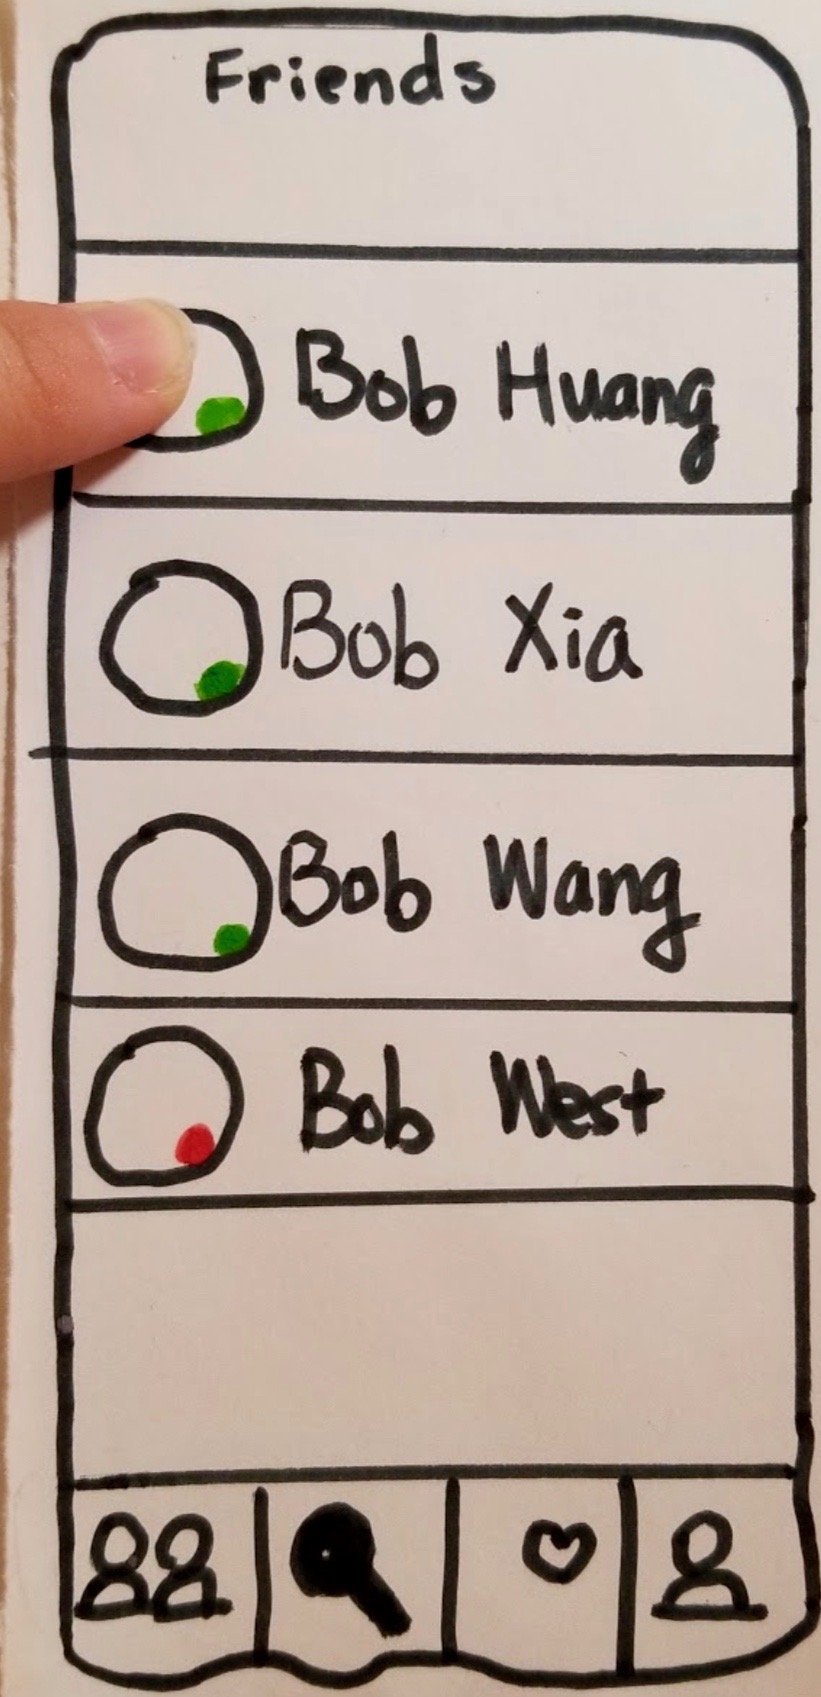 Friends
Bob Huang
Bob Xia
Bob Wang
Bob West